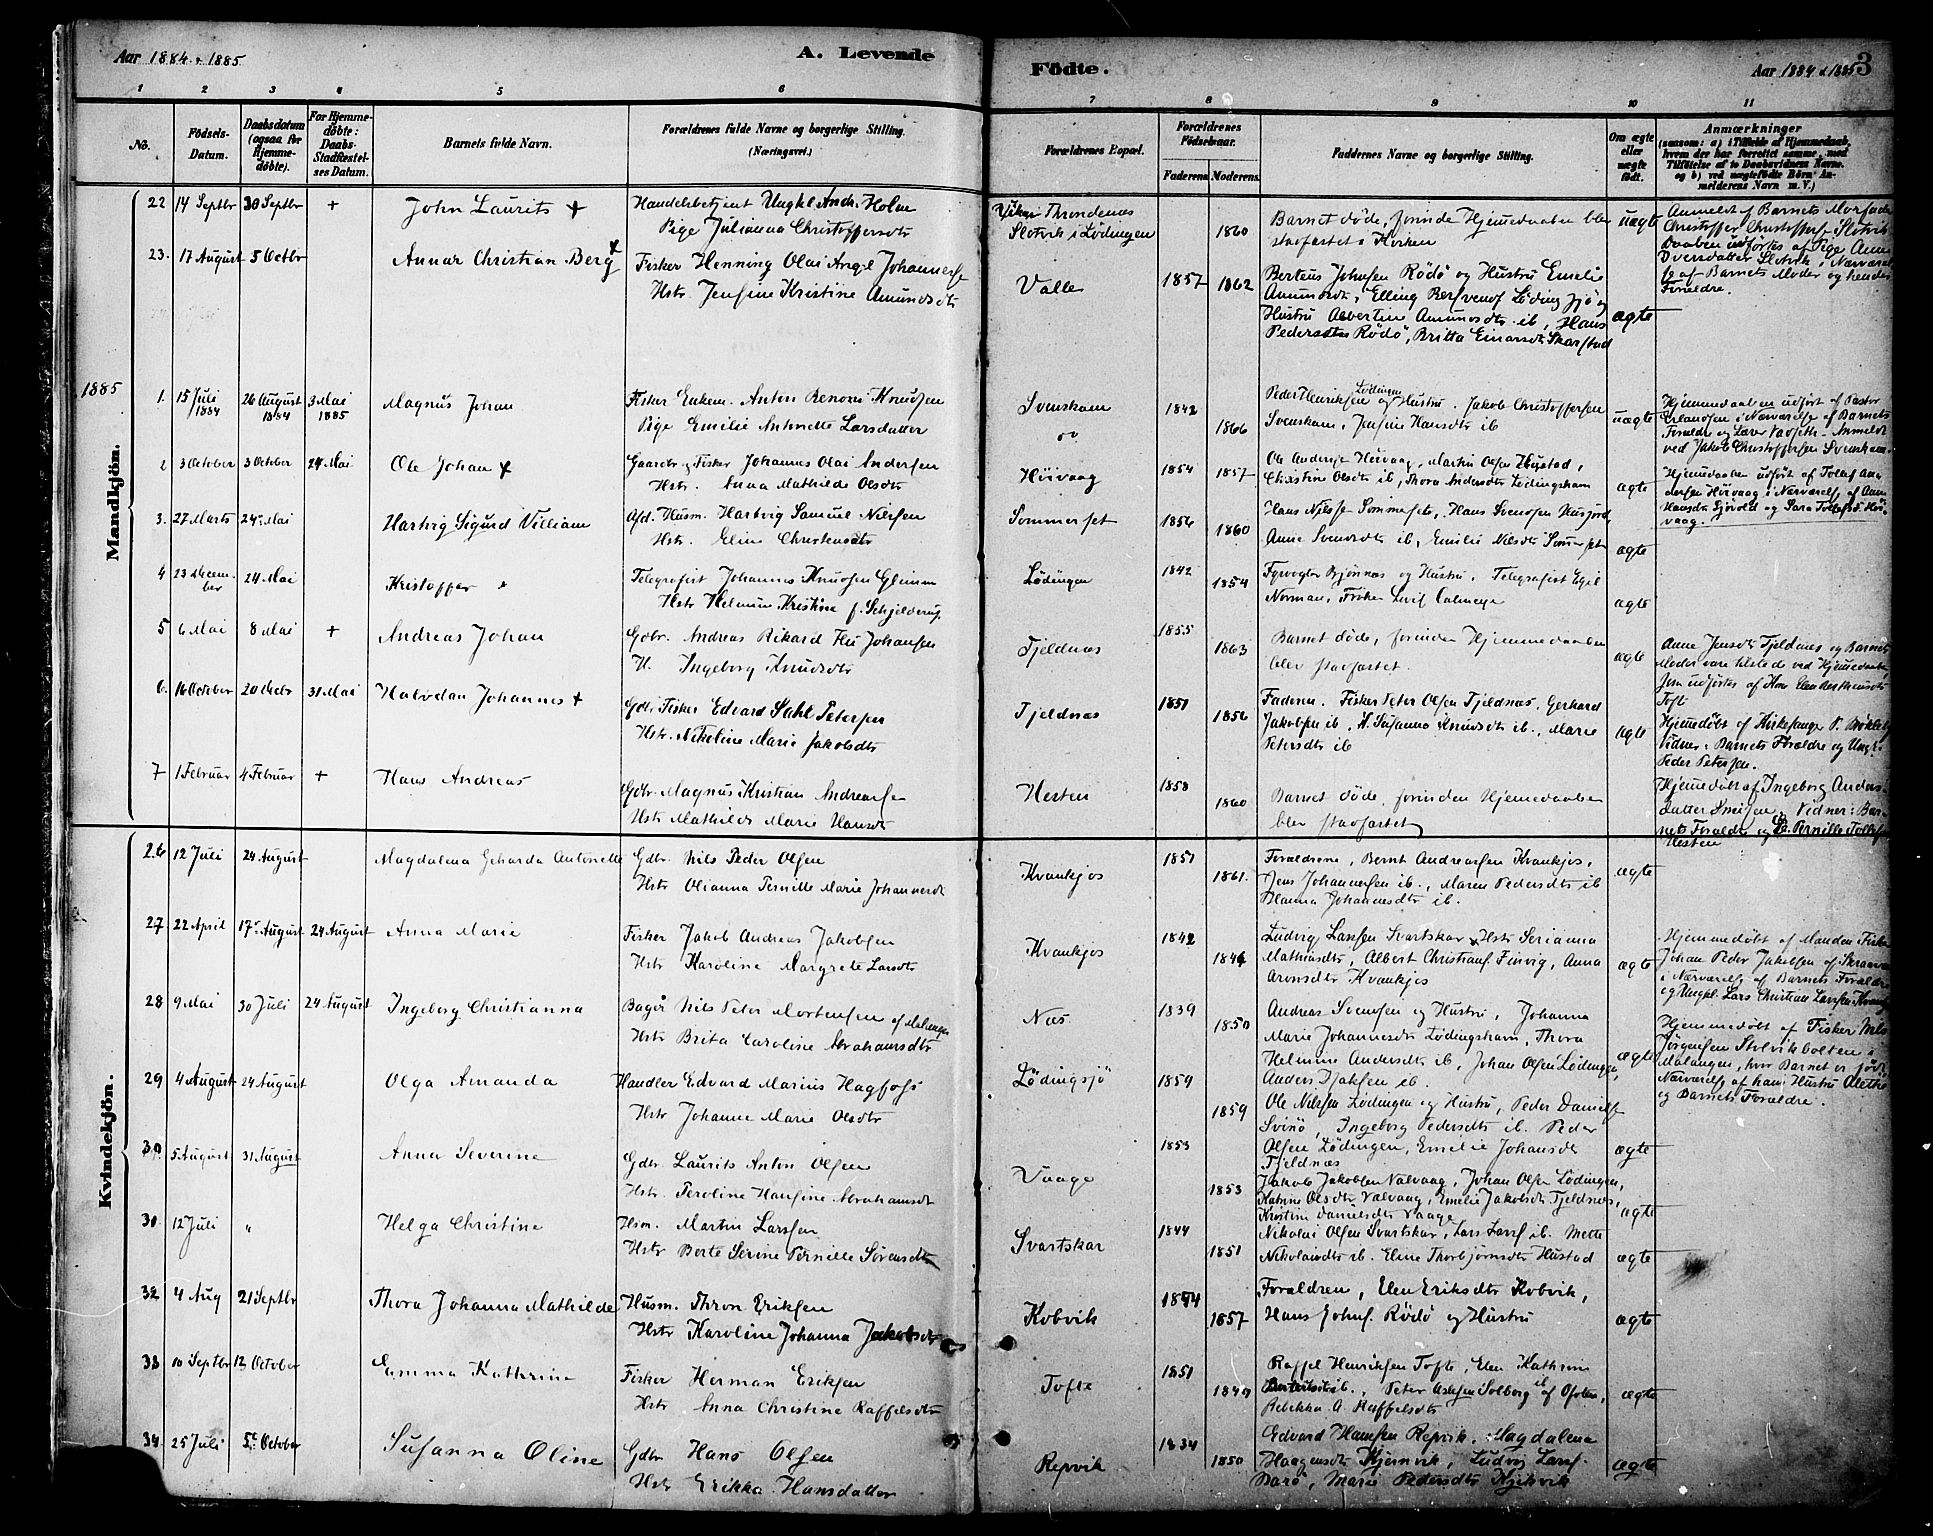 Aar 1884 & 1885
A. Levende
Födte.
Aar 1884 & 1885
3
1 2 3 4 5 6 7 8 9 10 11
No.
Födsels-
Datum.
Daabsdatum
(ogsaa for
Hjemme-
döbte).
For Hjemme-
döbte:
Daabs-
Stadfæstel-
ses Datum.
Barnets fulde Navn.
Forældrenes fulde Navne og borgerlige Stilling.
(Næringsvei.)
Forældrenes Bopæl.
Forældrenes
Födselsaar.
Faderens Moderens
Faddernes Navne og borgerlige Stilling.
Om ægte
eller
uægte
födt.
Anmærkninger
(saasom: a) i Tilfælde af Hjemmedaab,
hvem der har forrettet samme, med
Tilföielse af to Daabsvidners Navne.
og b) ved uægtefödte Börn An-
melderens Navn m. V.)
Mandkjön.
22 14 Septbr 30 Septbr + John Laurits + Handelsbetjent Ungkl Andr. Holm
Pige Julianna Christoffersdtr
Throndenæs
Slotvik i Lödingen 1860
Barnet döde, forinden Hjemmedaaben blev
stadfæstet i Kirken uægte
Anmeldt af Barnets Morfader
Christoffer Christoffersen Slotvik
Daaben udförtes af Pige Anne
Iversdatter Slotvik i Nærværel-
se af Barnets Moder og hendes
Forældre.
23. 17 August 5 Octbr Annar Christian Berg + Fisker Henning Olai Angel Johannessen
Hstr. Jensine Kristine Amundsdtr
Valle 1857 1862
Berteus Johnsen Rödö og Hustru Emelie
Amundsdtr, Elling Bersvends Lödingsjö og
Hustru Albertine Amundsdtr ib, Hans
Pedersen Rödö, Britta Einarsdtr Skarstad
ægte
1885
1. 15 Juli 1884 26 August 1884 3 Mai 1885 Magnus Johan Fisker Enkem. Anton Benoni Knudsen
Pige Emilie Antonette Larsdatter
Svenskam
1842 1866
Peder Henriksen Lödingen og Hustru. Jakob Christoffersen
Svenskam, Jensine Hansdtr ib uægte
Hjemmedaaben udfört af Pastor
Erlandsen i Nærværelse af Barnets
Forældre og Lærer Vadseth. Anmeldt
ved Jakob Christoffersen Svenskam.
2 3 October 3 October 24 Mai Ole Johan + Gaardbr og Fisker Johannes Olai Andersen
Hstr. Anna Mathilde Olsdtr
Höivaag 1854 1857
Ole Andersen Höivaag, Martin Olsen Hustad,
Christine Olsdtr ib, Thora Andersdtr Lödingsham
ægte
Hjemmedaaben udfört af Tollef An-
dersen Höivaag i Nærværelse af Anne
Hansdtr Gjövold og Sara Tollefsd. Höi-
vaag.
3. 27 Marts 24 Mai Hartvig Sigurd Villiam Afd. Husm. Hartvig Samuel Nilsen
Hstr. Eline Christensdtr
Sommerset 1856 1860
Hans Nilssen Sommerset, Hans Svendsen Husjord
Anne Svendsdtr ib, Emilie Nilsdtr Sommerset
ægte
4 23 Decem-
ber 24 Mai Kristoffer Telegrafist Johannes Knudsen Gleinn
Hstr Helmine Kristine f. Schjelderup
Lödingen 1842 1854
Fyrvogter Björnnæs og Hustru. Telegrafist Egil
Norman, Fröken Lovise Calmeyer ægte
5 6 Mai 8 Mai + Andreas Johan Gdbr. Andreas Rikard Johansen
H. Ingeborg Knudsdtr
Tjeldnæs 1855 1863
Barnet döde, forinden Hjemmedaaben
blev stadfæstet. ægte
Anne Jensdtr Tjeldnæs og Barnets
Moder vare tilstede ved Hjemmedaaben
som udförtes af Kone
Toft
6. 16 October 20 Octbr 31 Mai Halvdan Johannes + Gdbr. Fisker Edvard Dahl Petersen
Hstr. Nikoline Marie Jakobsdtr
Tjeldnæs 1851 1856
Faderen. Fisker Peter Olsen Tjeldnæs, Gerhard
Jakobsen ib, H. Susanna Knudsdtr ib., Marie
Petersdtr ib ægte
Hjemmedöbt af Kirkesanger P. Bökleby
Vidner: Barnets Forældre og Ungk.
Peder Petersen.
7 1 Februar 4 Februar + Hans Andreas Gdbr. Magnus Kristian Andreassen
Hstr Mathilde Marie Hansdtr
Hesten 1858 1860
Barnet döde, forinden Hjemmedaaben
blev stadfæstet
Hjemmedöbt af Ingeborg Anders-
datter. Vidner: Bar-
nets Forældre og Pernille Tollefs
Hesten
Kvindekjön.
26 12 Juli 24 August Magdalena Geharda Antonette Gdbr. Nils Peder Olsen
Hstr Olianna Pernille Marie Johannesdtr
Kvankjos 1851 1861.
Forældrene, Bernt Andreassen Kvankjos,
Jens Johannessen ib., Maren Pedersdtr ib
Hanna Johannesdtr ib. ægte
27 22 April 17 August 24 August Anna Marie Fisker Jakob Andreas Jakobsen
Hstr Karoline Margrete Larsdtr
Kvankjos 1842 1846
Ludvig Larssen Svartskar & Hstr Serianna
Mathiasdtr, Albert Christians Finvig, Anna
Arnsdtr Kvankjos ægte
Hjemmedöbt af Manden Fisker
Johan Peder Jakobsen af
i Nærværelse af Barnets Forældre
og Ungkl. Lars Christian Larssen Kvankjos
28 9 Mai 30 Juli 24 August Ingeborg Christianna Bager Nils Peter Mortensen af Malangen
Hstr Brita Caroline Abrahamsdtr
Næs 1839 1850
Andreas Svensen og Hustru, Johanna
Marie Johannesdtr Lödingsham, Thora
Helmine Andersdtr ib, Johan Olsen Lödingen,
Anders Isaksen ib. ægte
Hjemmedöbt af Fisker Nils
Jörgensen i
Malangen, hvor Barnet er födt
Nærværelse af hans Hustru Olethe
og Barnets Forældre.
29 4 August 24 August Olga Amanda Handler Edvard Marius Hagfors
Hstr Johanne Marie Olsdtr
Lödingsjö 1859 1859
Ole Nilssen Lödingen og Hustru, Peder Daniels
Svinö, Ingeborg Pedersdtr ib. Peder
Olsen Lödingen, Emilie Johansdtr
Tjeldnæs ægte
30 5 August 31 August Anna Severine Gdbr Laurits Anton Olsen
Hstr. Peroline Hansine Abrahamsdtr
Vaage 1853 1853
Jakob Jakobsen Valvaag, Johan Olsen Lödingen,
Katrine Olsdtr Valvaag, Emelie Jakobsdtr Tjeldnæs,
Kristine Danielsdtr Vaage ægte
30. 12 Juli " Helga Christine Husm. Martin Larssen
Hstr Berte Serine Pernille Sörensdtr
Svartskar 1844 1851
Nikolai Olsen Svartskar, Lars Larss ib. Mette
Nikolaisdtr ib. Eline Thorbjörnsdtr Hustad ægte
32 4 Aug 21 Septbr Thora Johanna Mathilde Husm. Thron Eriksen
Hstr Karoline Johanna Jakobsdtr
Kobvik 1854 1857
Forældren, Elen Eriksdtr Kobvik,
Hans Johns. Rödö og Hustru ægte
33 10 Septbr 12 October Emma Kathrine Fisker Herman Eriksen
Hstr Anna Christine Raffelsdtr
Tofte 1851 1849
Raffel Henriksen Tofte, Elen Kathrine
ib., Peter Solberg af Ofoten,
Rebekka A. Raffelsdtr ib ægte
34. 25 Juli 5 October Susanna Oline Gdbr Hans Olsen
Hstr Erikka Hansdatter
Repvik 1834 1850
Edvard Hansen Repvik. Magdalena
Haagensdtr Kjernvik, Ludvig Larss.
Barö, Marie Pedersdtr Kjikvik ægte